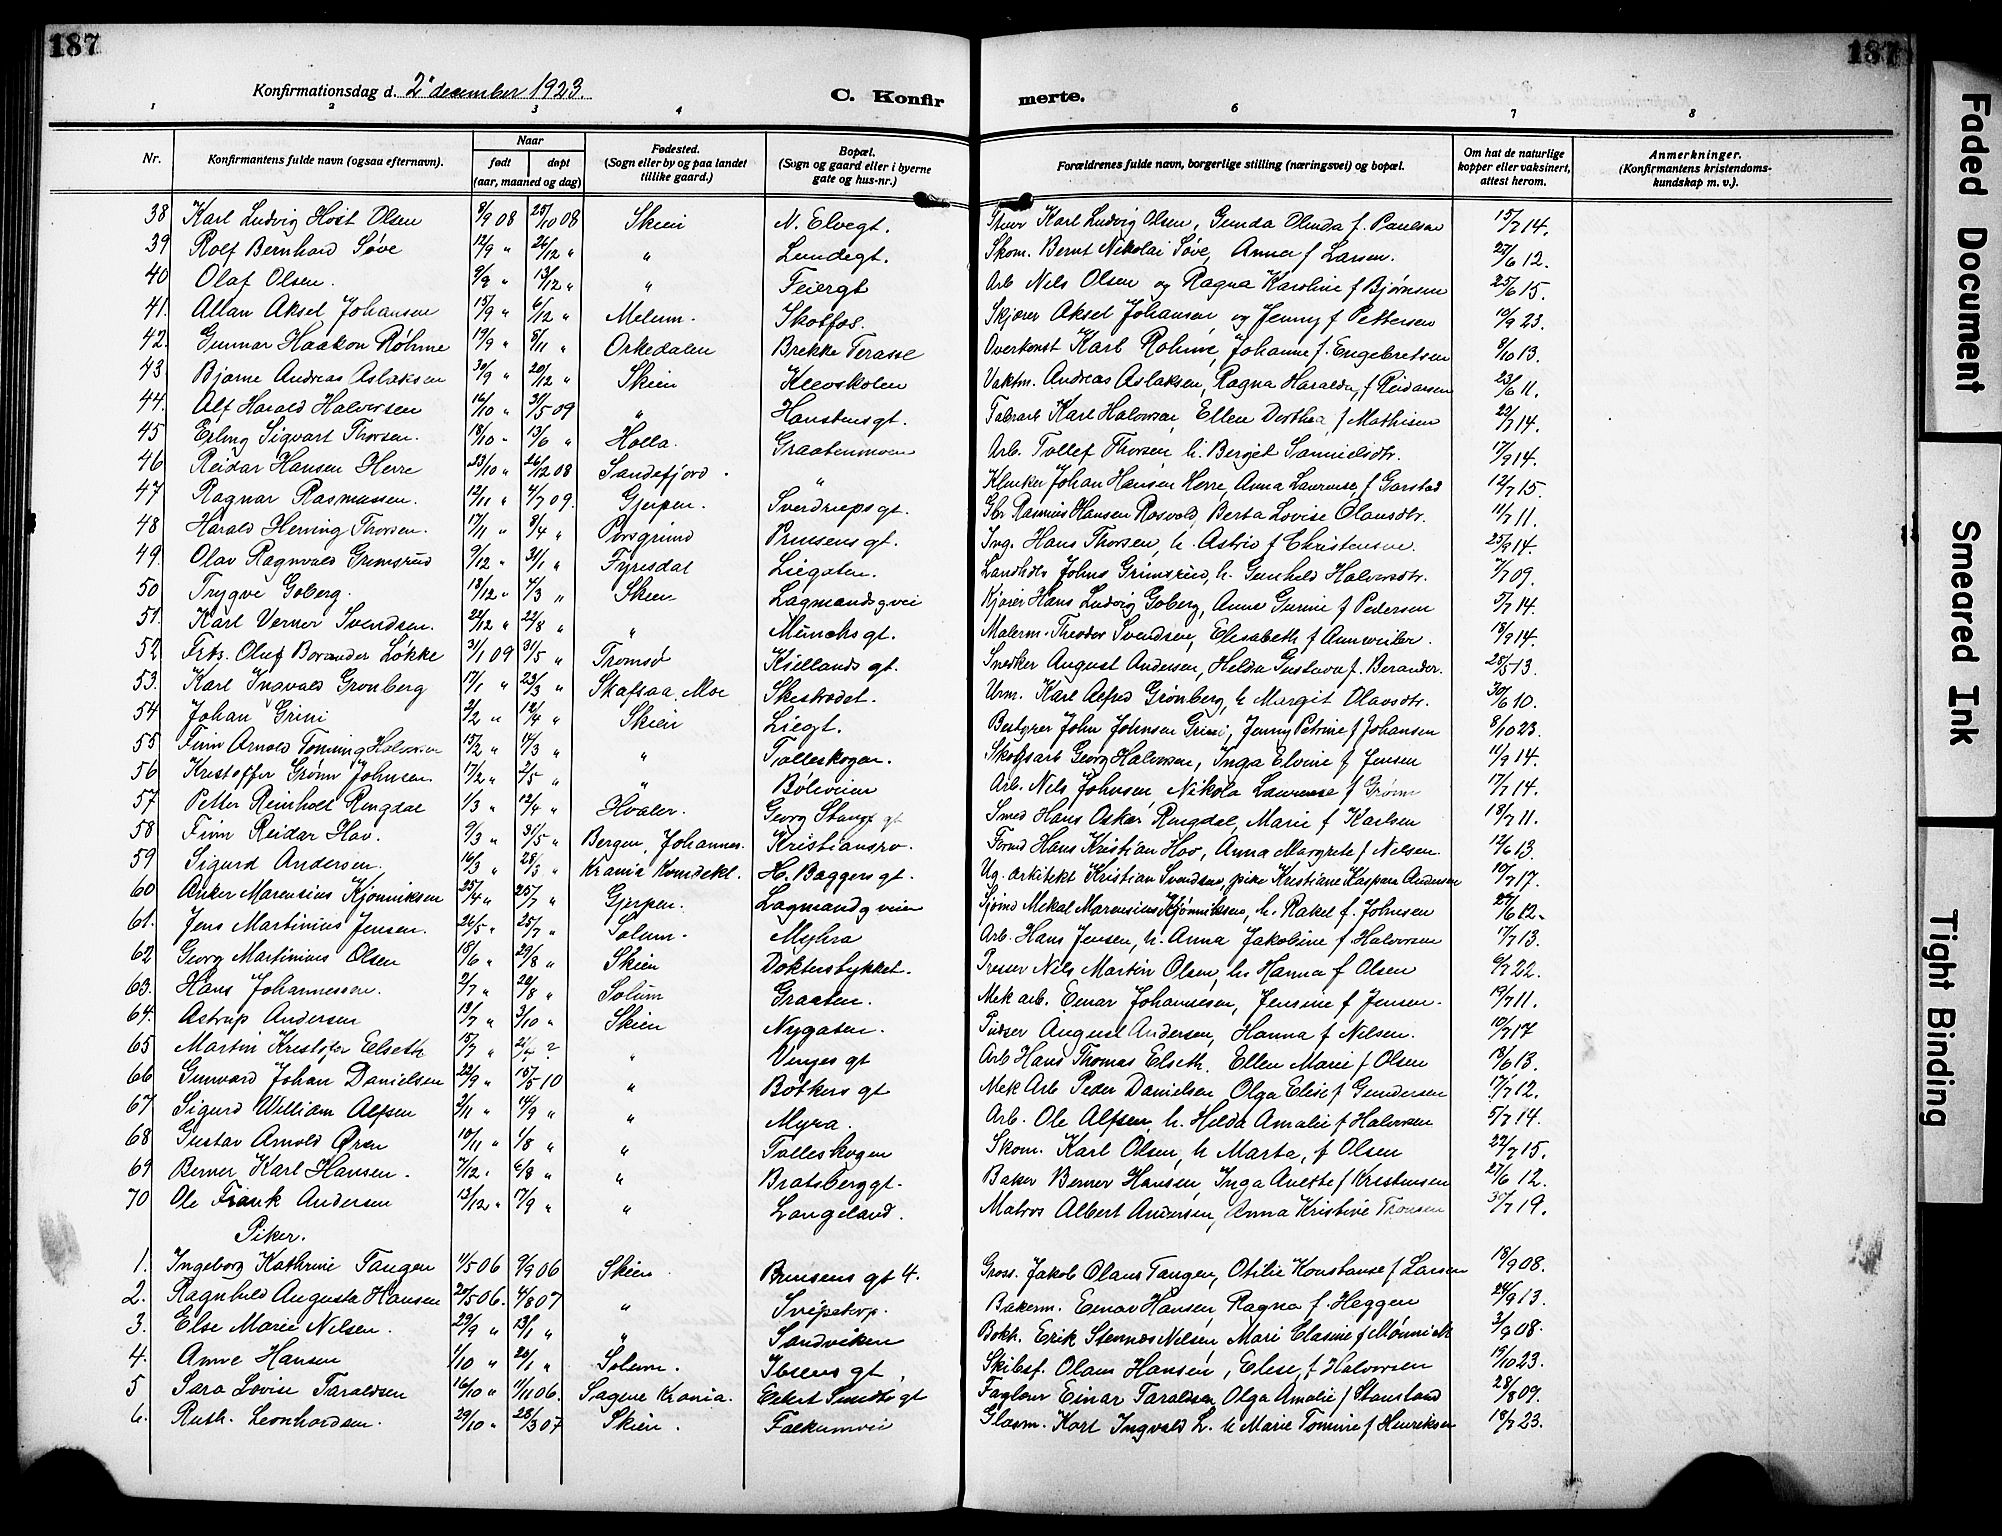 187
187
Konfirmationsdag d. 2' december 1923.
C. Konfir
merte.
1 2 3 4 6 7 8
Nr. Konfirmantens fulde navn (ogsaa efternavn). Naar født døpt (aar, maaned og dag) Fødested. (Sogn eller by og paa landet tillike gaard.) Bopæl. (Sogn og gaard eller i byerne gate og hus-nr.) Forældrenes fulde navn, borgerlige stilling (næringsvei) og bopæl. Om hat de naturlige kopper eller vaksinert, attest herom. Anmerkninger. (Konfirmantens kristendoms-kundskap m. v.).
38 Karl Ludvig Høst Olsen 8/9 08 25/10 08 Skien N. Elvegt. Karl Ludvig Olsen, Gunda Olinda f. Paulsen 15/7 14.
39 Rolf Bernhard Søve 12/9 " 26/12 " " Lundegt. Skom. Bernt Nikolai Søve, Anna f Larsen. 25/6 12.
40 Olaf Olsen. 9/9 " 13/12 " " Feiergt Arb Nils Olsen og Ragna Karoline f Bjørnsen 25/6 15.
41. Allan Aksel Johansen 15/9 " 6/12 " Melum. Skotfos. Skjærer Aksel Johansen og Jenny f Pettersen 10/9 23.
42. Gunnar Haakon Röhme 19/9 " 8/11 " Orkedalen Brekke Terasse Overkonst Karl Rohme, Johanne f. Engebretsen 8/10 13.
43 Bjarne Andreas Aslaksen 30/9 " 20/12 " Skien Klevskolen Vaktm. Andreas Aslaksen, Ragna Haralda, f Reidarsen 23/6 11.
44. Alf Harald Halvorsen 16/10 " 31/5 09 " Hanstensgt. Fabrarb Karl Halvorsen, Ellen Dorthea f Mathisen 20/7 14.
45 Erling Sigvart Thorsen. 18/10 " 13/6 " Holla. Graatenmoen Arb. Tollef Thorsen, h. Bergjet Samuelsdtr. 17/9 14.
46 Reidar Hansen Herre 23/10 " 26/12 08 Sandefjord. " Klinker Johan Hansen Herre, Anna Laurense, f Garstad 12/7 15.
47 Ragnar Rasmussen. 12/11 " 4/7 09. Gjerpen. Sverdrupsgt. Gbr Rasmus Hansen Rosvold, Berta Lovise Olausdtr. 11/7 11.
48 Harald Henning Thorsen. 17/11 " 8/4 " Porsgrund Prussens gt. Ing. Hans Thorsen, h. Astrid f Christensen. 25/9 14.
49. Olav Ragnvald Grimsrud 9/12 " 31/1 " Fyresdal Liegaten. Landhdl. Johns Grimsrud, h. Gunhild Halvorsdtr. 7/7 09.
50 Trygve Goberg. 18/12 " 7/3 " Skien Lagmandsgvei Kjører Hans Ludvig Goberg, Anne Gurine f Pedersen 5/7 14.
51. Karl Verner Svendsen. 22/12 " 22/8 " " Münchs gt. Malerm. Theodor Svendsen, Elisabeth f Annweiler. 18/9 14.
52 Frts. Oluf Borander Løkke 31/1 09 31/5 " Tromsø Kiellands gt. Snedker August Andersen, Helda Gustava f. Berander. 28/5 13.
53. Karl Ingvald Grønberg 17/1 " 23/3 " Skafsaa Moe Skistredet. Urm. Karl Alfred Grønberg, h Margit Olavsdtr. 30/6 10.
54 Johan Grini 2/2 " 12/4 " Skien Liegt. Bestyrer John Johnsen Grini, Jenny Petrine f Johansen 8/10 23.
55 Finn Arnold Tønning Halvorsen 15/2 " 14/3 " " Tolleskogen. Skotfsarb Georg Halvorsen, Inga Elvine f Jensen 11/9 14.
56 Kristoffer Grønn Johnsen. 17/2 " 2/5 " " Böleveien Arb. Nils Johnsen, Nikola Laurense f Grønn 17/7 14.
57 Petter Reinholt Ringdal 1/3 " 12/4 " Hvaler. Georg Stangs gt Smed Hans Oskar Ringdal, Marie f Karlsen 18/7 11.
58 Finn Reidar Hov. 9/3 " 31/5 " Bergen, Johannes. Kristiansro. Formd Hans Kristian Hov, Anna Margrete f Nilsen. 12/6 13.
59 Sigurd Andersen. 16/3 " 28/3 " Krania Kvindekl. H. Baggers gt. Ug. arkitekt Kristian Svendsen, pike Kristiane Kaspara Andersen 10/7 17.
60 Anker Marensius Kjønniksen 25/4 " 25/7 " Gjerpen. Lagmandgveien Sjømd Mekal Marensius Kjønniksen, h. Rakel f. Johnsen 24/6 12.
61. Jens Martinius Jensen. 26/5 " 25/7 " Solum. Myhra Arb. Hans Jensen, h. Anna Jakobine f Halvorsen 17/7 13.
62 Georg Martinius Olsen 18/6 " 29/8 " Skien Doktersbykket. Presser Nils Martin Olsen, h. Hanna f Olsen 6/7 22.
63. Hans Johannessen. 2/7 " 20/8 " Solum Graaten. Mek arb. Einar Johansesen, Jensine f Jensen. 19/7 11.
64. Astrup Andersen 13/7 " 3/10 " Skien Nygaten. Pudser August Andersen, Hanna f Nilsen. 10/7 17
65 Martin Kristofer Elseth 15/7 " 21/4 ? " Vinjes gt Arb Hans Thomas Elseth. Ellen Marie f Olsen 18/6 13.
66 Gunvard Johan Danielsen 22/9 " 15/5 10 " Bøtkers gt Mek Arb Peder Danielsen Olga Elise f Gundersen 17/7 12.
67 Sigurd William Alfsen 2/11 " 14/9 " " Myra. Arb. Ole Alfsen, h. Helda Amalie f Halvorsen 5/7 14.
68 Gustav Arnold Ören 10/11 " 1/8 " " Tolleskogen Skom. Karl Olsen, h Marta, f Olsen 22/7 15.
69 Berner Karl Hansen. 7/12 " 6/8 " " Bratsberggt. Baker Berner Hansen, Inga f Kristensen 27/6 12.
70 Ole Frank Andersen 13/12 " 17/9 " " Langeland. Matros Albert Andersen, Anna Kristine Thomsen 30/7 19.
Piker.
1. Ingeborg Kathrine Tangen 11/5 06 9/9 06 Skien Brusens gt 4. Gross. Jakob Olaus Tangen, Otilie Konstanse f Larsen 18/9 08.
2. Ragnhild Augusta Hansen 20/5 06. 4/8 07 " Svipetrop. Bakerm. Einar Hansen, Ragna f. Heggen 24/9 13.
3. Else Marie Nilsen. 29/9 " 13/1 " " Sandviken Bokh. Erik Stennæs Nilsen, Mari Elasine f Mønnich 3/9 08.
4. Anne Hansen 1/10 " 20/1 " Solum. Ibsens gt, Skibsf. Olam Hansen, Elise, f Halvorsen 19/10 23.
5 Sara Lovise Taraldsen 16/10 " 11/11 06. Sagene Krania. Eilert Sundts gt Faglær Einar Taraldsen, Olga Amalie f Stansland 28/8 09.
6. Ruth. Leonhardsen. 29/10 " 28/3 07 Skien. Falkumvei Glasm. Karl Ingvald L. h Marie Tomine f Henriksen 18/7 23.
Faded Document
Smeared Ink
Tight Binding